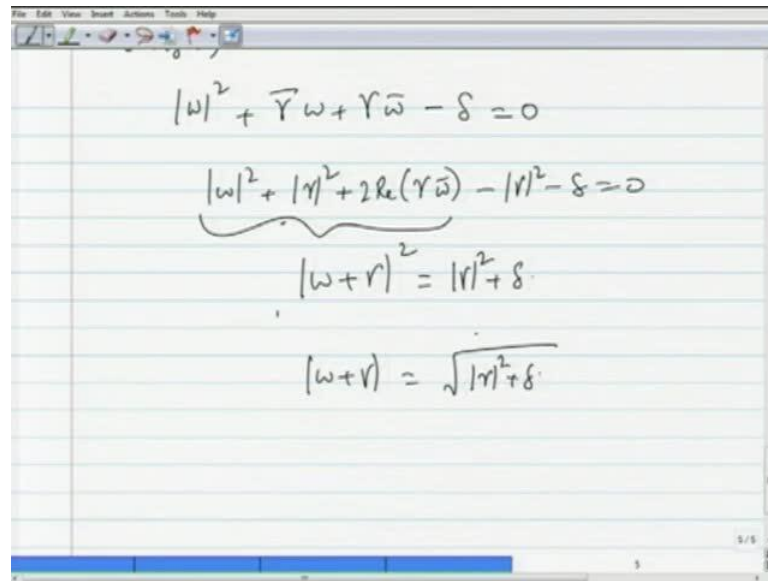 File Edit View Insert Actions Tools Help
|ω|² + γ̅ω + γω̅ − δ = 0
|ω|² + |γ|² + 2Re(γω̅) − |γ|² − δ = 0
|ω+γ|² = |γ|² + δ.
|ω+γ| = √(|γ|² + δ).
5/5
5